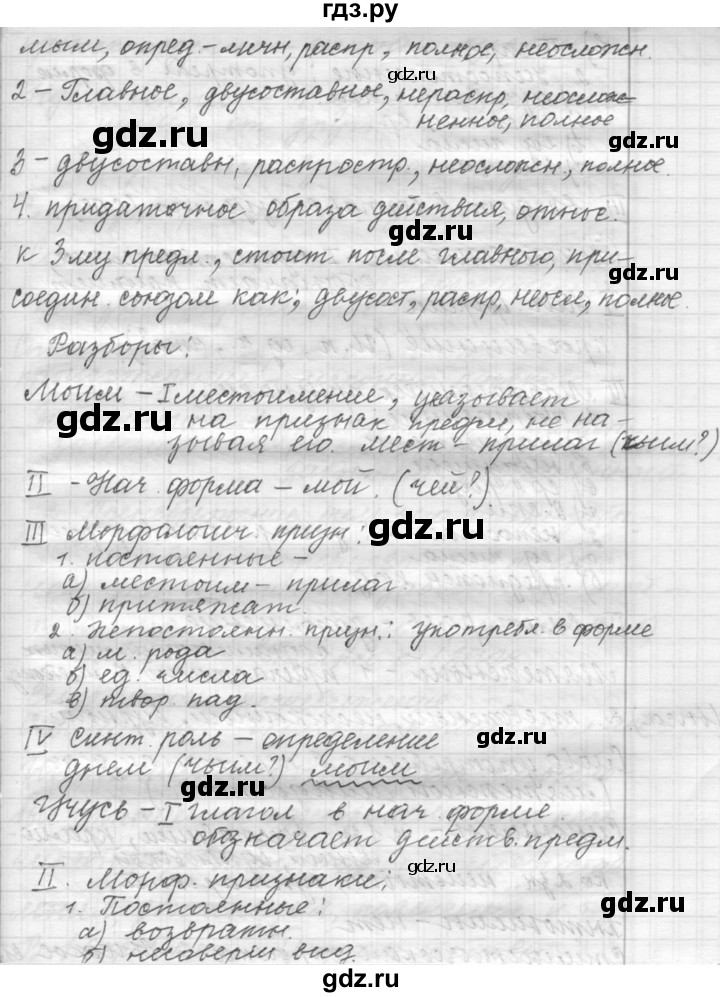 гдз.ру
мым, опред.-личн, распр., полное, неосложн.
2 - Главное, двусоставное, нераспр, неослож-
ненное, полное
3 - двусоставн, распростр., неосложн., полное.
4. придаточное образа действия, относ.
к 3му предл., стоит после главного, при-
соедин. союзом как; двусост, распр, неосл, полное.
Разборы:
Моим - I местоимение, указывает
на признак предм, не на-
зывая его. мест - прилаг (чьим?)
II - Нач. форма - мой. (чей?)
III Морфологич призн:
1. постоянные -
а) местоим - прилаг.
б) притяжат.
2. Непостоянн. призн.: употребл. в форме
а) м. рода
б) ед. числа
в) твор. пад.
IV синт. роль - определение
днем (чьим?) моим
Учусь - I глагол в нач. форме.
обозначает действ. предм.
II. Морф. признаки:
1. Постоянные:
а) возвратн.
б) несоверш вид.
gdz.ru
gdz.ru
gdz.ru
gdz.ru
gdz.ru
gdz.ru
gdz.ru
gdz.ru
gdz.ru
gdz.ru
gdz.ru
gdz.ru
gdz.ru
гдз.ру